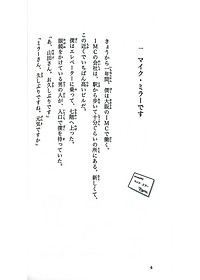 一　マイク・ミラーです
きょうから一年間、僕は大阪のＩＭＣで働く。
ＩＭＣの会社は、駅から歩いて十分ぐらいの所にある。新しくて、
この近くでいちばん高いビルだ。
僕はエレベーターに乗って、七階へ上った。
眼鏡をかけている男の人が、入口で僕を待っていた。
「あ、山田さん。お久しぶりです」
「ミラーさん、久しぶりですね。元気ですか」